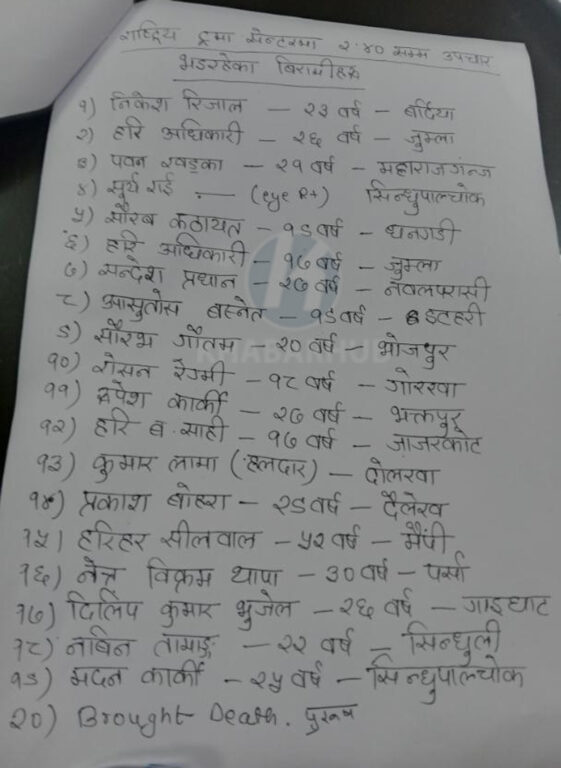 राष्ट्रिय ट्रमा सेन्टरमा २:४० सम्म उपचार
भइरहेका बिरामीहरु
१) निकेश रिजाल - २३ वर्ष - बर्दिया
२) हरि अधिकारी - २६ वर्ष - जुम्ला
३) पवन खड्का - २१ वर्ष - महाराजगन्ज
४) सुर्य राई - (eye R+) सिन्धुपाल्चोक
५) सौरब कठायत - १९ वर्ष - धनगडी
६) हरि अधिकारी - १७ वर्ष - जुम्ला
७) सन्देश प्रधान - २७ वर्ष - नवलपरासी
८) आसुतोस बस्नेत - १९ वर्ष - इटहरी
९) सौरभ गौतम - २० वर्ष - भोजपुर
१०) रोसन रेग्मी - १८ वर्ष - गोरखा
११) रुपेश कार्की - २७ वर्ष - भक्तपुर
१२) हरि ब. साही - १७ वर्ष - जाजरकोट
१३) कुमार लामा (हलदार) - दोलखा
१४) प्रकाश बोहरा - २९ वर्ष - दैलेख
१५) हरिहर सीलवाल - ५२ वर्ष - मैंपी
१६) नेत्र विक्रम थापा - ३० वर्ष - पर्सा
१७) दिलिप कुमार भुजेल - २६ वर्ष - गाइघाट
१८) नबिन तामाङ्ग - २२ वर्ष - सिन्धुली
१९) मदन कार्की - २५ वर्ष - सिन्धुपालचोक
२०) Brought Death. पुरुष
KHABARHUB